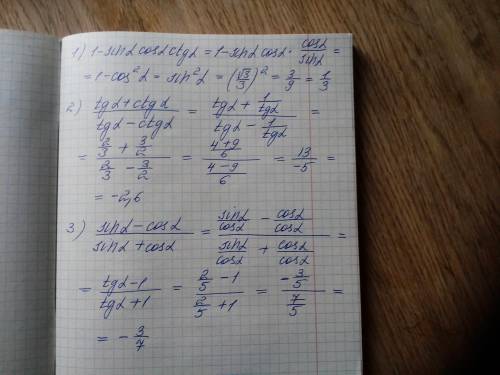 1) 1-sinα cosα ctgα = 1-sinα cosα · cosα/sinα =
= 1-cos²α = sin²α = (√3/3)² = 3/9 = 1/3
2) (tgα+ctgα)/(tgα-ctgα) = (tgα + 1/tgα)/(tgα - 1/tgα) =
= (2/3 + 3/2)/(2/3 - 3/2) = ((4+9)/6)/((4-9)/6) = 13/-5 =
= -2,6
3) (sinα-cosα)/(sinα+cosα) = (sinα/cosα - cosα/cosα)/(sinα/cosα + cosα/cosα) =
= (tgα-1)/(tgα+1) = (2/5 -1)/(2/5 +1) = (-3/5)/(7/5) =
= -3/7